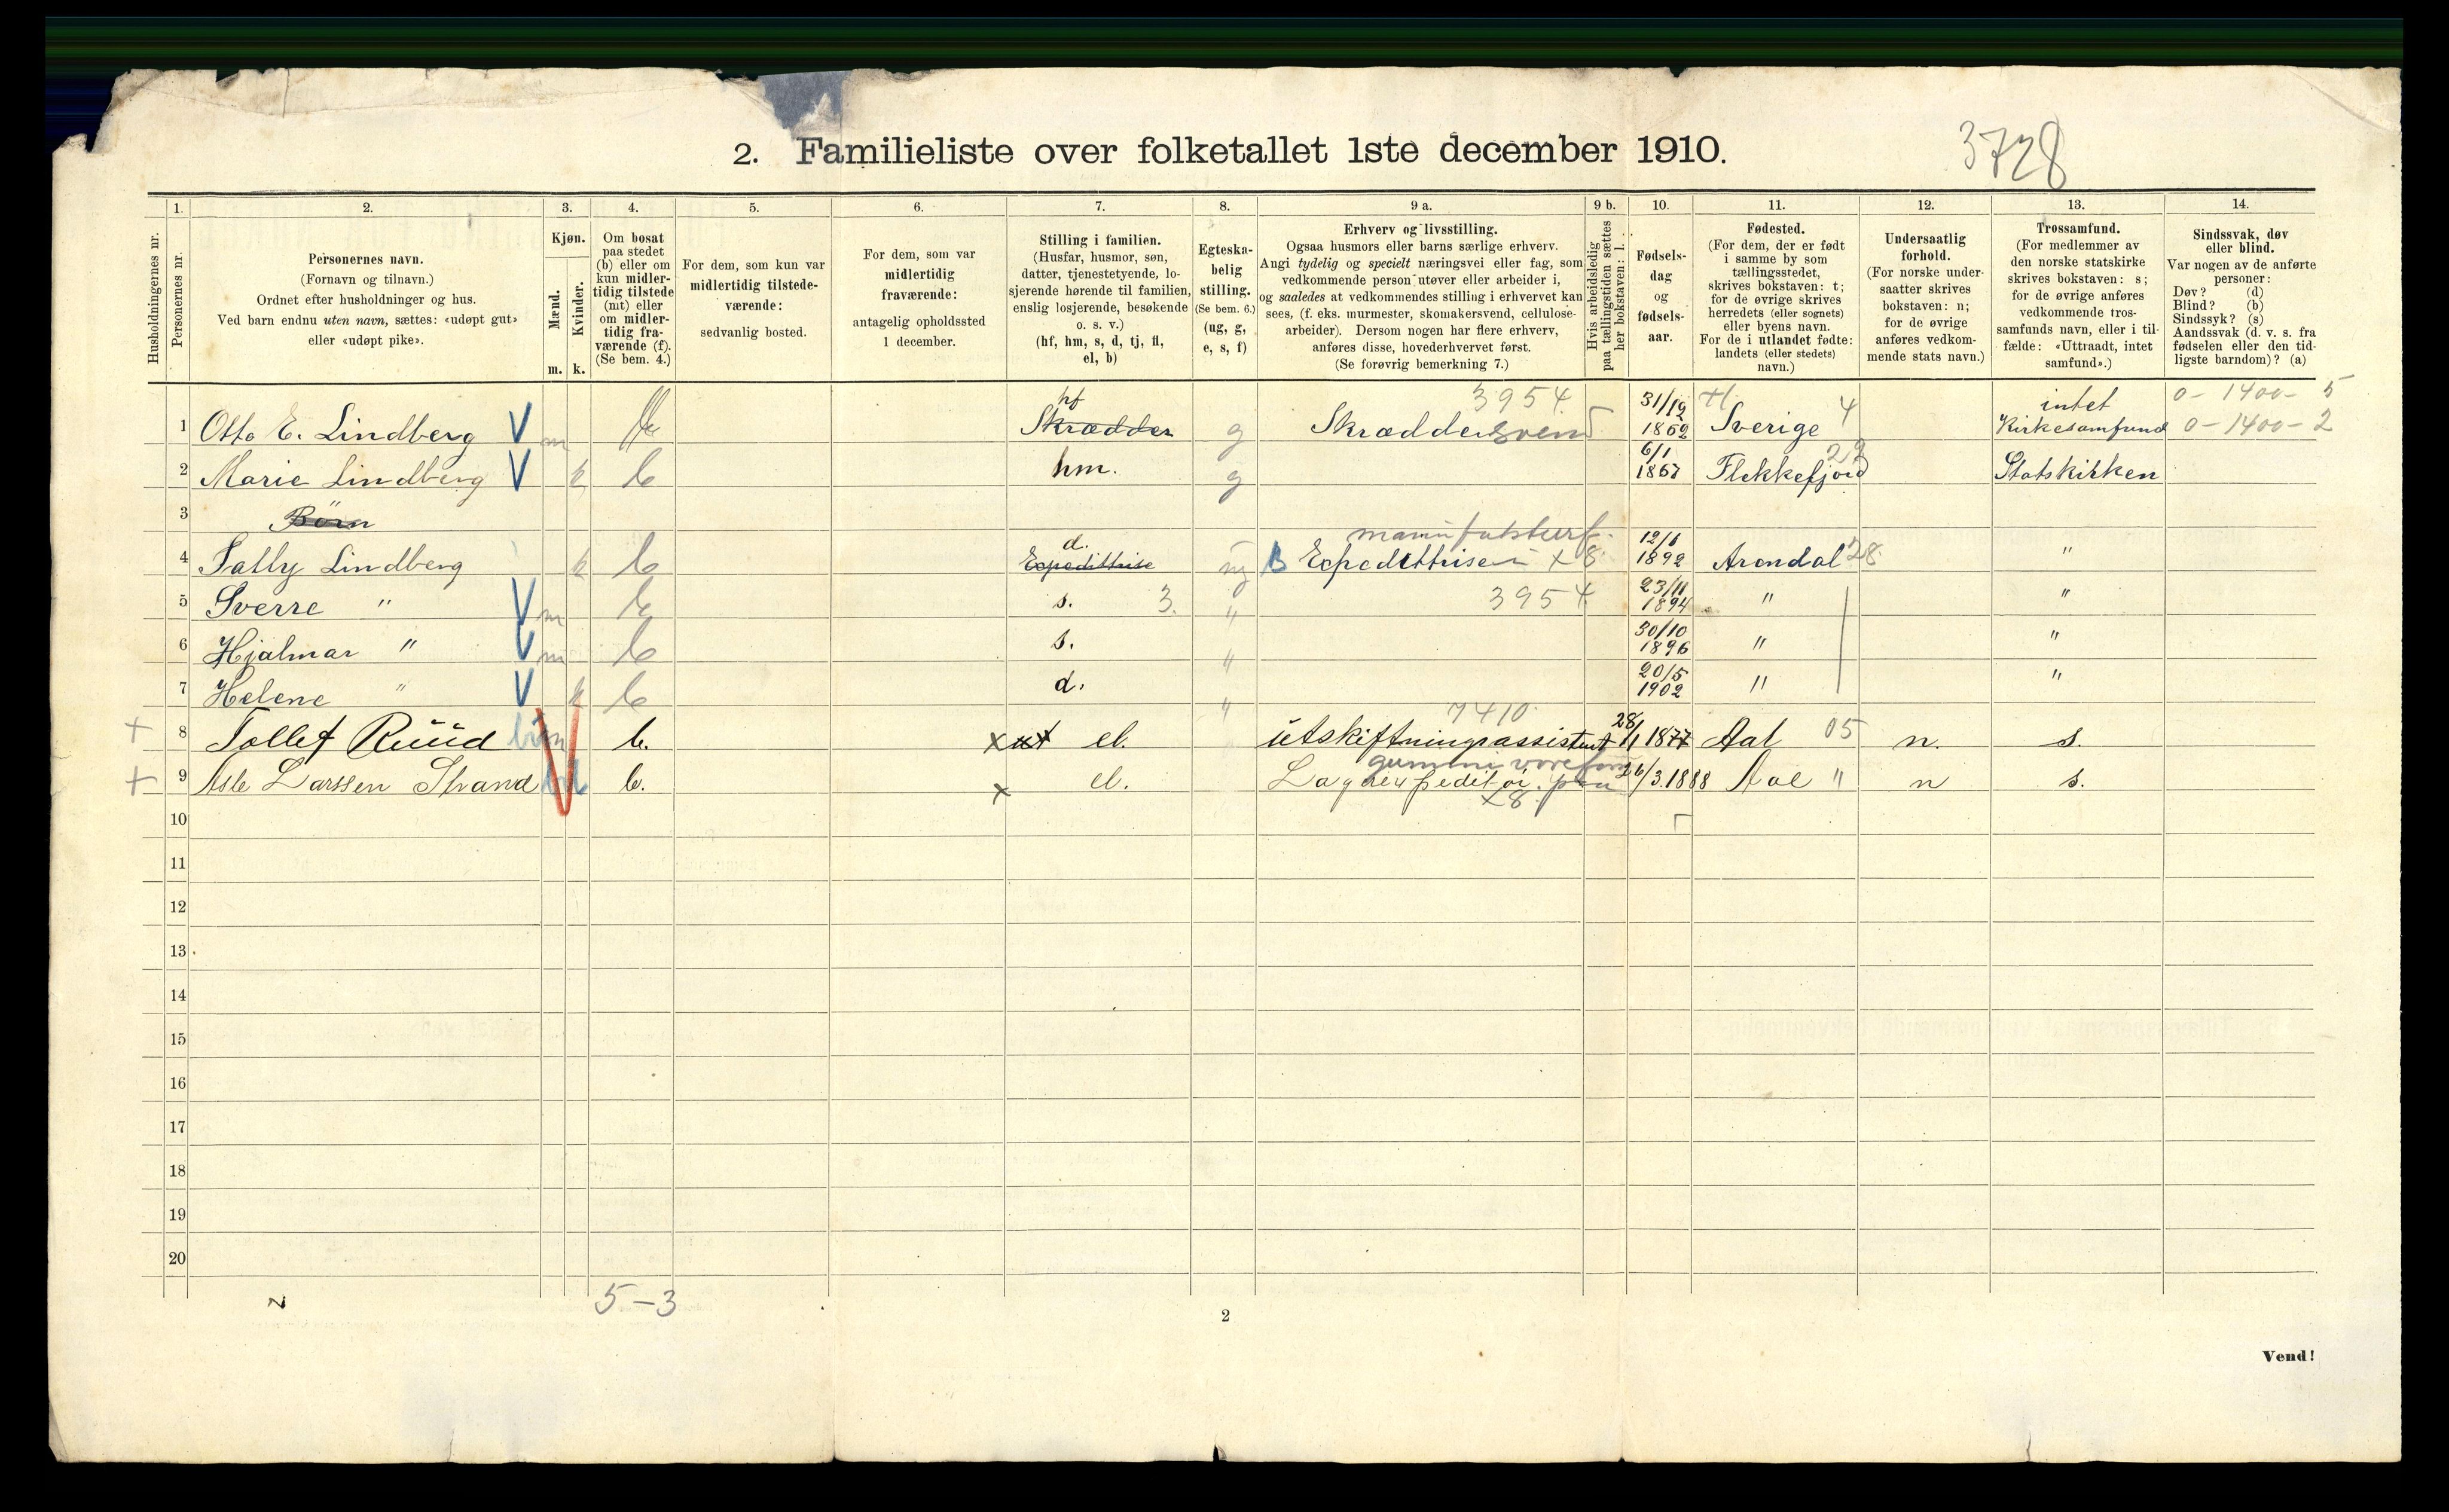 2. Familieliste over folketallet 1ste december 1910.
3728
Husholdningernes nr.
1. Personernes nr.
2. Personernes navn.
(Fornavn og tilnavn.)
Ordnet efter husholdninger og hus.
Ved barn endnu uten navn, sættes: «udøpt gut»
eller «udøpt pike».
3. Kjøn.
Mænd. m.
Kvinder. k.
4. Om bosat
paa stedet
(b) eller om
kun midler-
tidig tilstede
(mt) eller
om midler-
tidig fra-
værende (f).
(Se bem. 4.)
5. For dem, som kun var
midlertidig tilstede-
værende:
sedvanlig bosted.
6. For dem, som var
midlertidig
fraværende:
antagelig opholdssted
1 december.
7. Stilling i familien.
(Husfar, husmor, søn,
datter, tjenestetyende, lo-
sjerende hørende til familien,
enslig losjerende, besøkende
o. s. v.)
(hf, hm, s, d, tj, fl,
el, b)
8. Egteska-
belig
stilling.
(Se bem. 6.)
(ug, g,
e, s, f)
9 a. Erhverv og livsstilling.
Ogsaa husmors eller barns særlige erhverv.
Angi tydelig og specielt næringsvei eller fag, som
vedkommende person utøver eller arbeider i,
og saaledes at vedkommendes stilling i erhvervet kan
sees, (f. eks. murmester, skomakersvend, cellulose-
arbeider). Dersom nogen har flere erhverv,
anføres disse, hovederhvervet først.
(Se forøvrig bemerkning 7.)
9 b. Hvis arbeidsledig
paa tællingstiden sættes
her bokstaven: l.
10. Fødsels-
dag
og
fødsels-
aar.
11. Fødested.
(For dem, der er født
i samme by som
tællingsstedet,
skrives bokstaven: t;
for de øvrige skrives
herredets (eller sognets)
eller byens navn.
For de i utlandet fødte:
landets (eller stedets)
navn.)
12. Undersaatlig
forhold.
(For norske under-
saatter skrives
bokstaven: n;
for de øvrige
anføres vedkom-
mende stats navn.)
13. Trossamfund.
(For medlemmer av
den norske statskirke
skrives bokstaven: s;
for de øvrige anføres
vedkommende tros-
samfunds navn, eller i til-
fælde: «Uttraadt, intet
samfund».)
14. Sindssvak, døv
eller blind.
Var nogen av de anførte
personer:
Døv? (d)
Blind? (b)
Sindssyk? (s)
Aandssvak (d. v. s. fra
fødselen eller den tid-
ligste barndom)? (a)
hf 3954 31/12 intet 0-1400-5
1 Otto E. Lindberg V m b Skrædder g Skræddersvend 1862 Sverige 4 Kirkesamfund 0-1400-2
2 Marie Lindberg V k b hm. g 6/1 1867 Flekkefjord Statskirken
3 Börn
d. manufakturf.
4 Sally Lindberg k b Expeditrise ug B Expeditrise i x 8. 12/6 1892 Arendal 28 "
5 Sverre " V m b s. 3. " 3954 23/11 1894 " "
6 Hjalmar " V m b s. " 30/10 1896 " "
7 Helene " V k b d. " 20/5 1902 " "
7410
+ 8 Tollef Ruud m b. x el. utskiftningsassistent 28/1 1877 Aal 05 n. s.
gummivareforr
+ 9 Asle Larssen Strand b. x el. Lagerexpeditør paa 26/3.1888 Aal " n s.
x8
10
11
12
13
14
15
16
17
18
19
20
5-3
2
Vend!